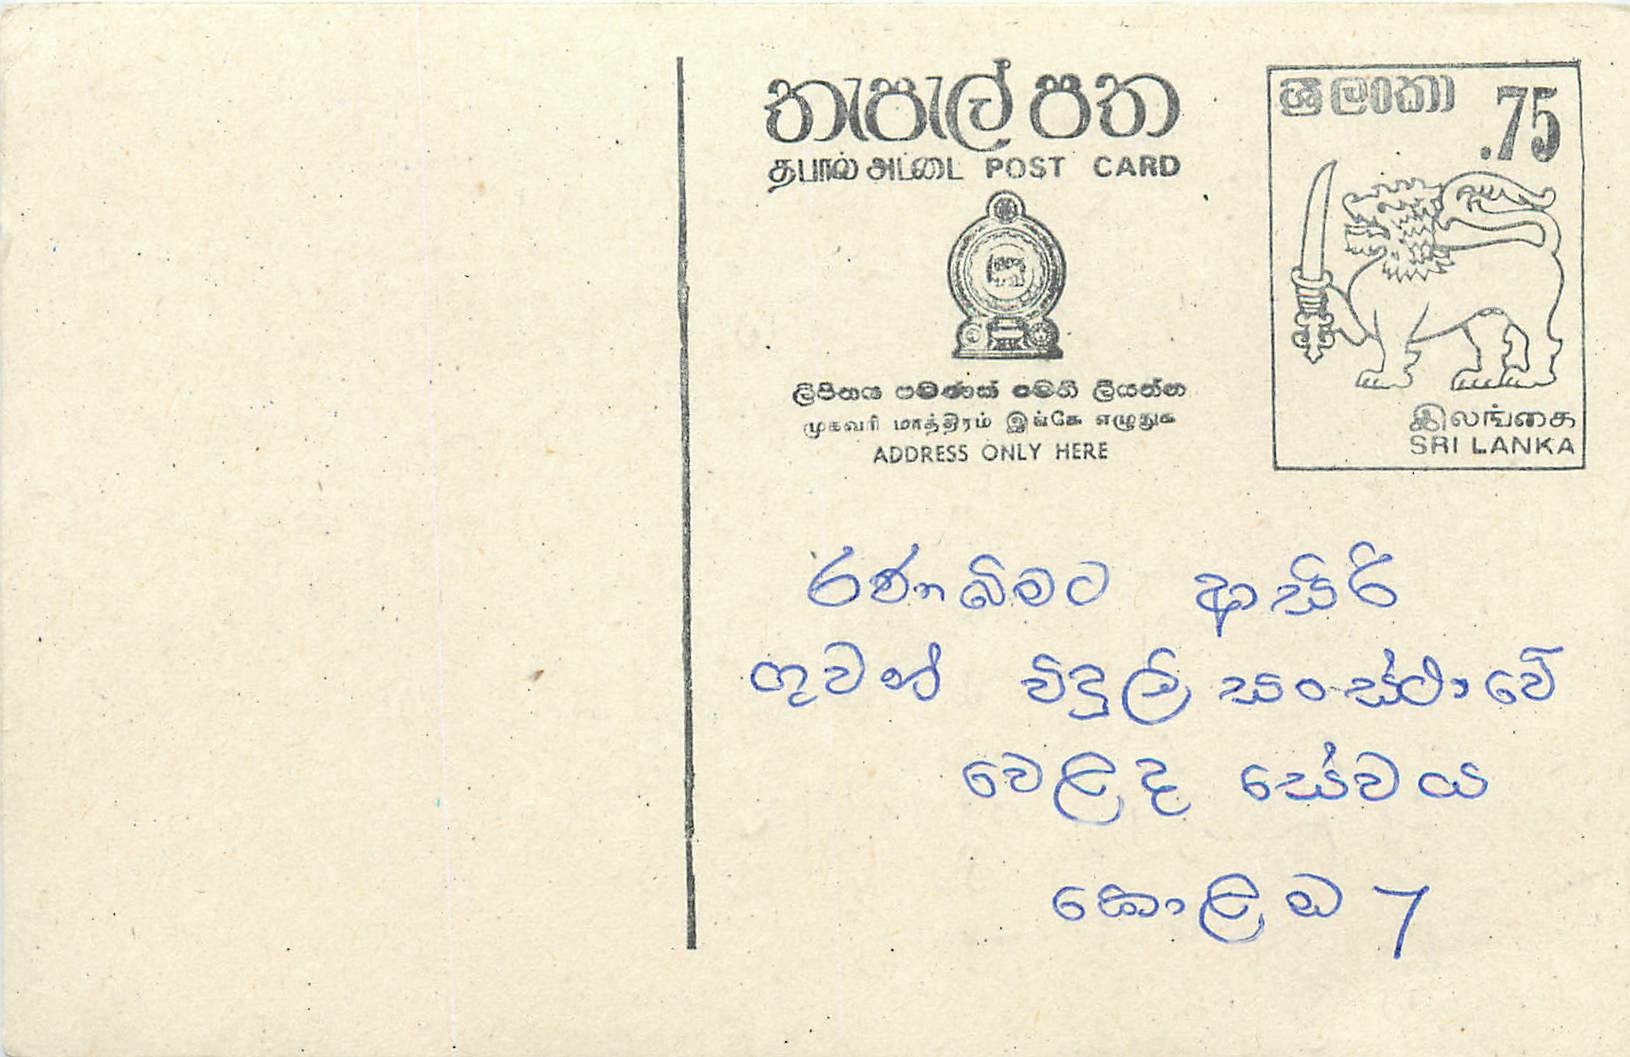 තැපැල් පත
தபால் அட்டை POST CARD
ලිපිනය පමණක් මෙහි ලියන්න
முகவரி மாத்திரம் இங்கே எழுதுக
ADDRESS ONLY HERE
ශ්‍රී ලංකා .75
இலங்கை
SRI LANKA
රණබිමට ආසිරි
ගුවන් විදුලි සංස්ථාවේ
වෙළද සේවය
කොළඹ 7